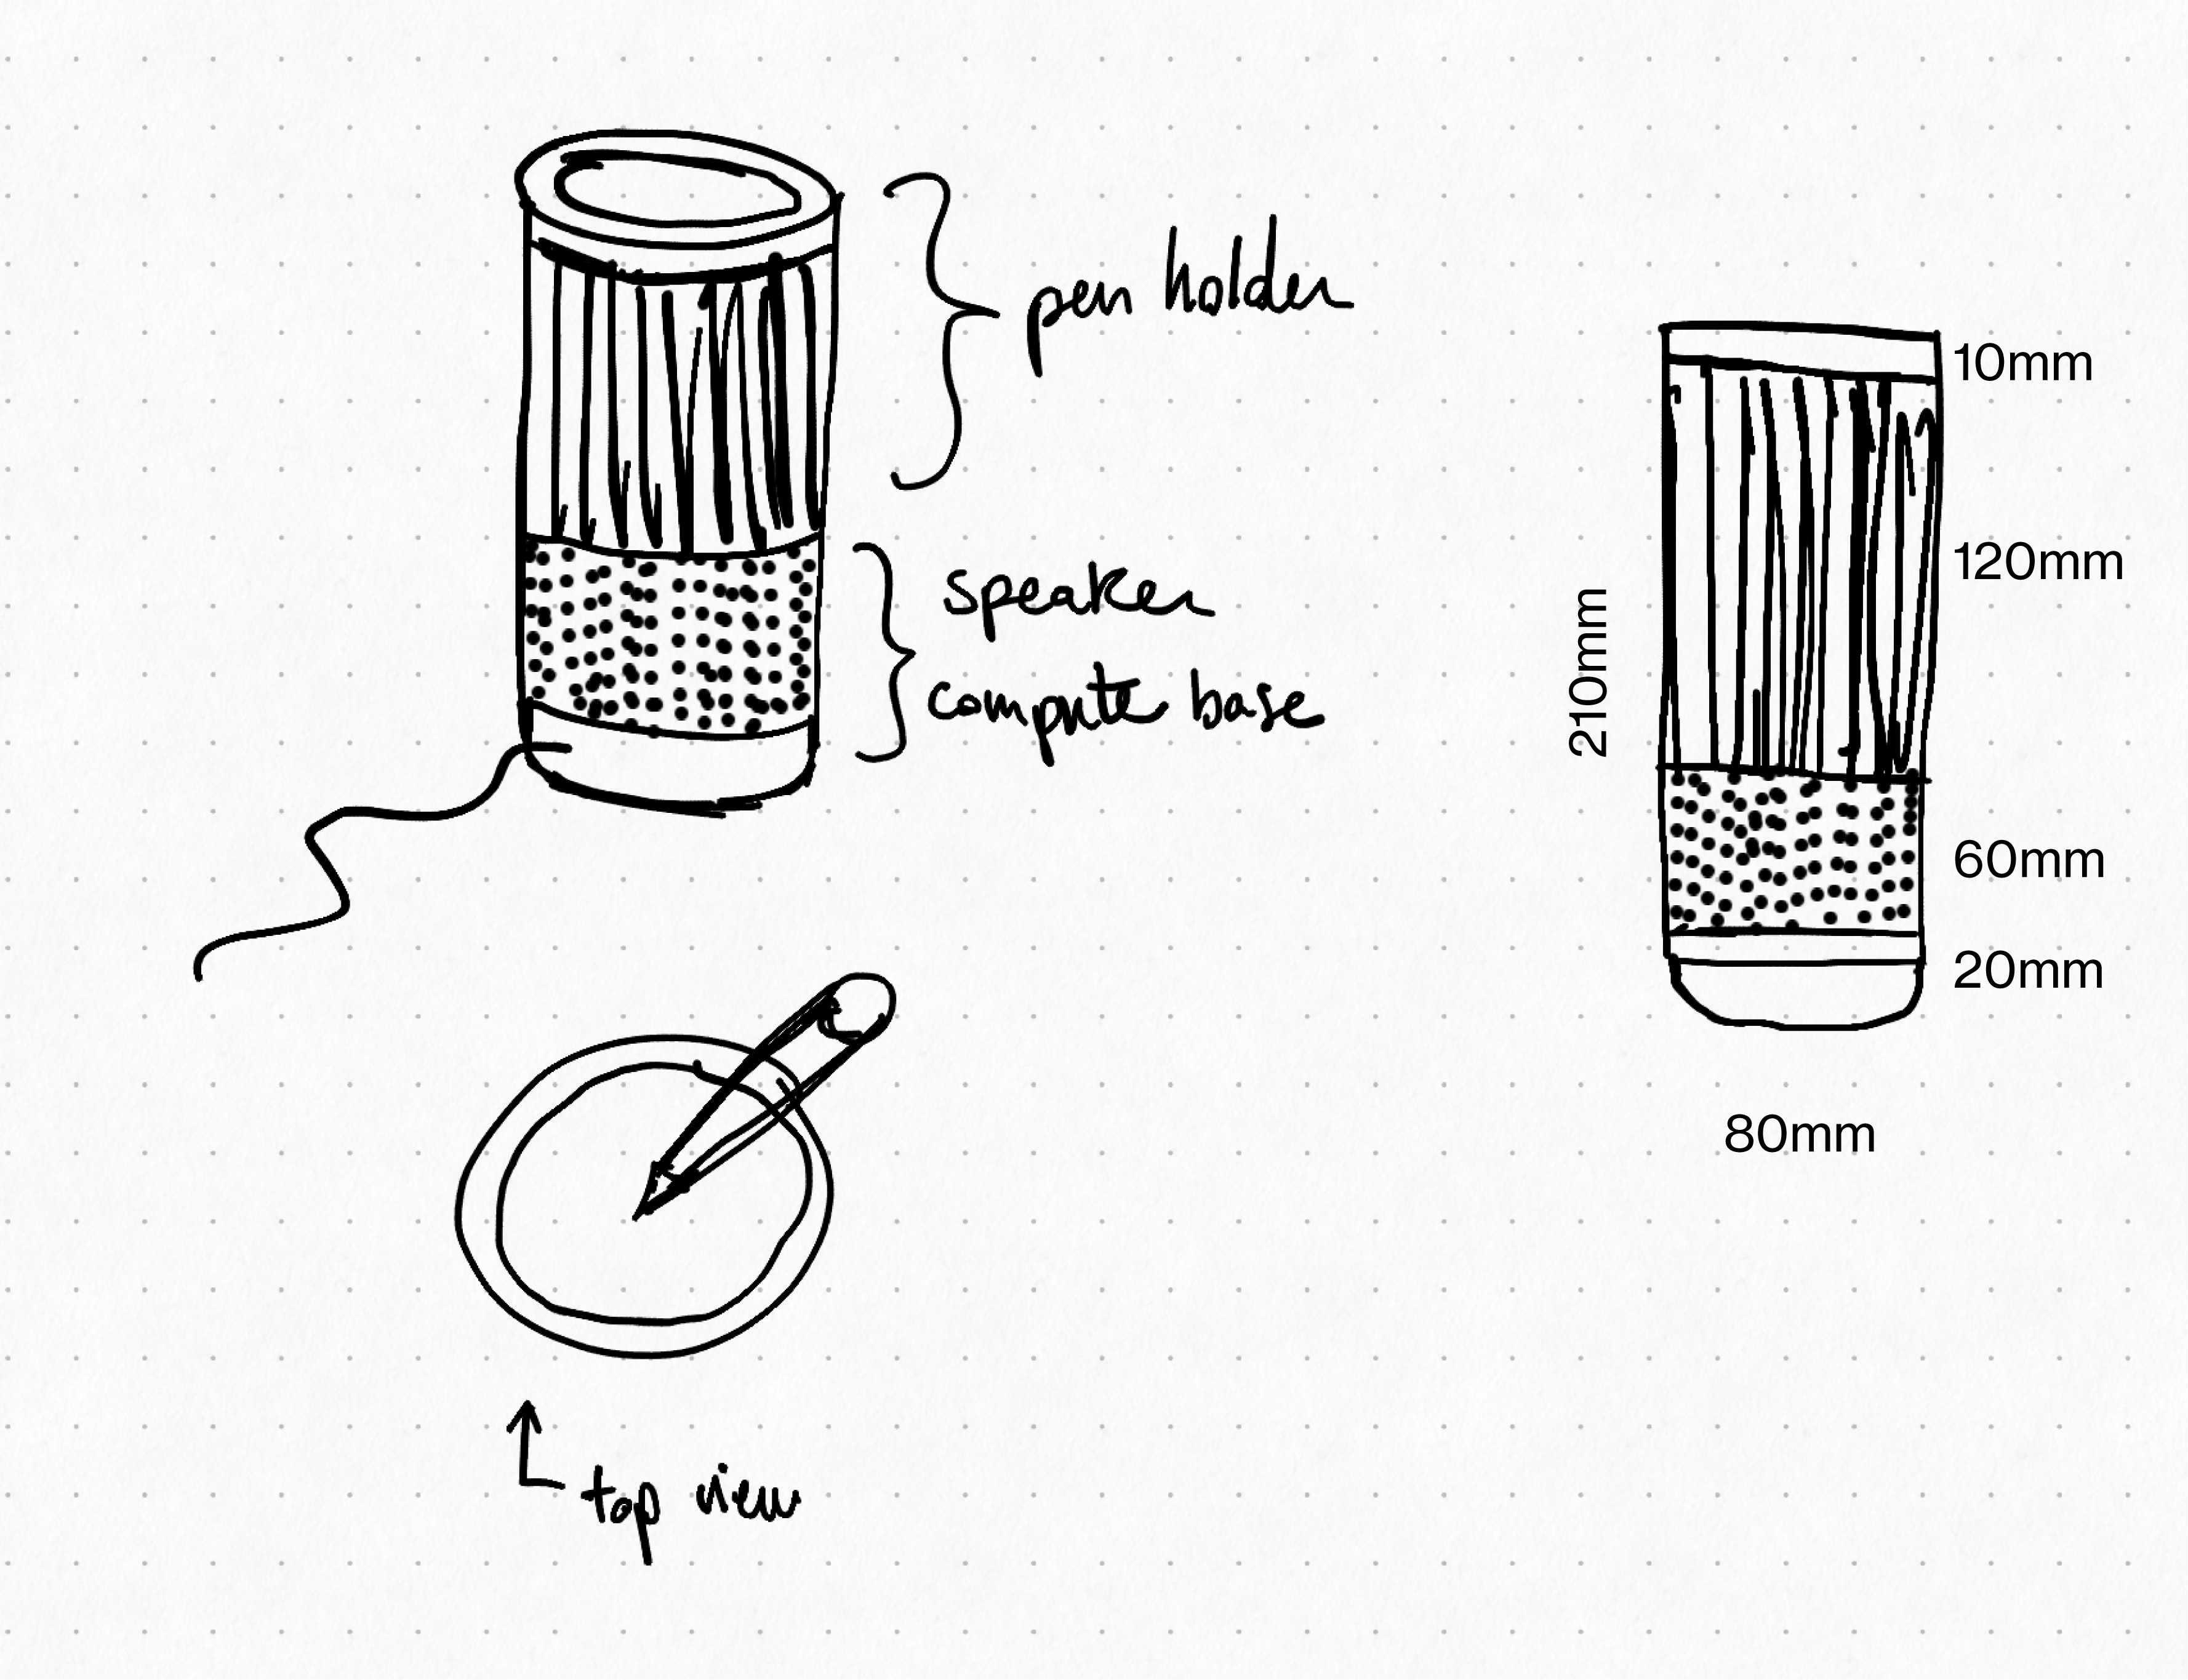 pen holder
speaker
compute base
top view
10mm
120mm
210mm
60mm
20mm
80mm